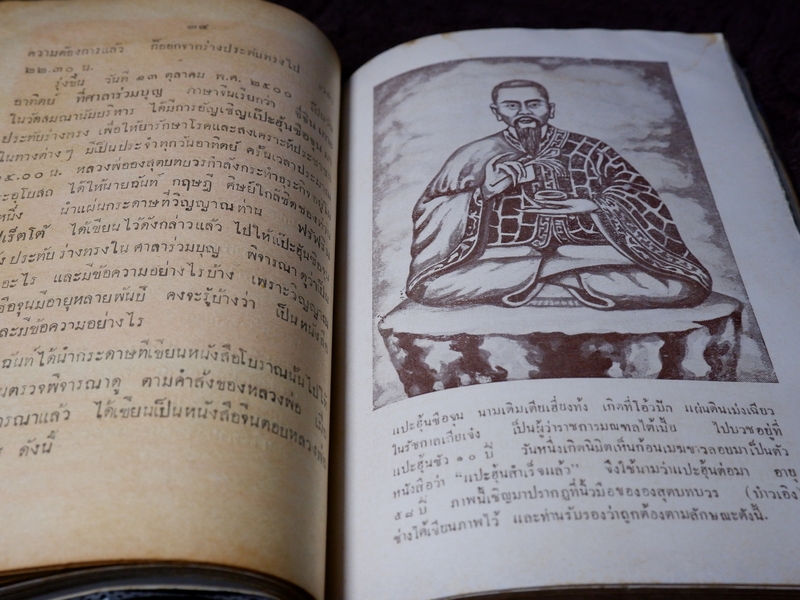 ๓๔
ความต้องการแล้ว ก็ออกจากร่างประทับทรงไป
๒๒.๓๐ น.
รุ่งขึ้น วันที่ ๑๓ ตุลาคม พ.ศ. ๒๕๐๐
อาทิตย์ ที่ศาลาร่วมบุญ ภาษาจีนเรียกว่า
ในวัดสมณานัมบริหาร ได้มีการอัญเชิญแป๊ะฮุ้นซือจุน
ประทับร่างทรง เพื่อให้ยารักษาโรคและสงเคราะห์ประชาชน
ในทางต่างๆ มีเป็นประจำทุกวันอาทิตย์ ครั้นเวลาประมาณ
๑๕.๐๐ น. หลวงพ่อองสุตบทบวรกำลังกระทำธุระกิจ
อุโบสถ ได้ให้นายฉันท์ กฤษฎี ศิษย์ใกล้ชิดของท่าน
หนึ่ง นำแผ่นกระดาษที่วิญญาณท่าน
เร็ตโต้ ได้เขียนไว้ดังกล่าวแล้ว ไปให้แป๊ะฮุ้นซือจุน
ประทับร่างทรงใน ศาลาร่วมบุญ พิจารณาดูว่าเป็น
อะไร และมีข้อความอย่างไรบ้าง เพราะวิญญาณ
ซือจุนมีอายุหลายพันปี คงจะรู้บ้างว่า เป็นหนังสือ
และมีข้อความอย่างไร
ฉันท์ได้นำกระดาษที่เขียนหนังสือโบราณนั้นไปให้
ตรวจพิจารณาดู ตามคำสั่งของหลวงพ่อ เมื่อ
แล้ว ได้เขียนเป็นหนังสือจีนตอบหลวงพ่อ
ดังนี้
แปะฮุ้นซือจุน นามเดิมเตียเฮี่ยงท้ง เกิดที่โอ้วปัก แผ่นดินเม่งเฉียว
ในรัชกาลเกียเจ๋ง เป็นผู้ว่าราชการมณฑลไต้เปื้อ ไปบวชอยู่ที่
แปะฮุ้นซัว ๑๐ ปี วันหนึ่งเกิดนิมิตเห็นก้อนเมฆขาวลอยมาเป็นตัว
หนังสือว่า “แปะฮุ้นสำเร็จแล้ว” จึงใช้นามว่าแปะฮุ้นต่อมา อายุ
๕๘ ปี ภาพนี้เชิญมาปรากฏที่นิ้วมือขององสุตบทบวร (บ๋าวเอิง)
ช่างได้เขียนภาพไว้ และท่านรับรองว่าถูกต้องตามลักษณะดังนี้.